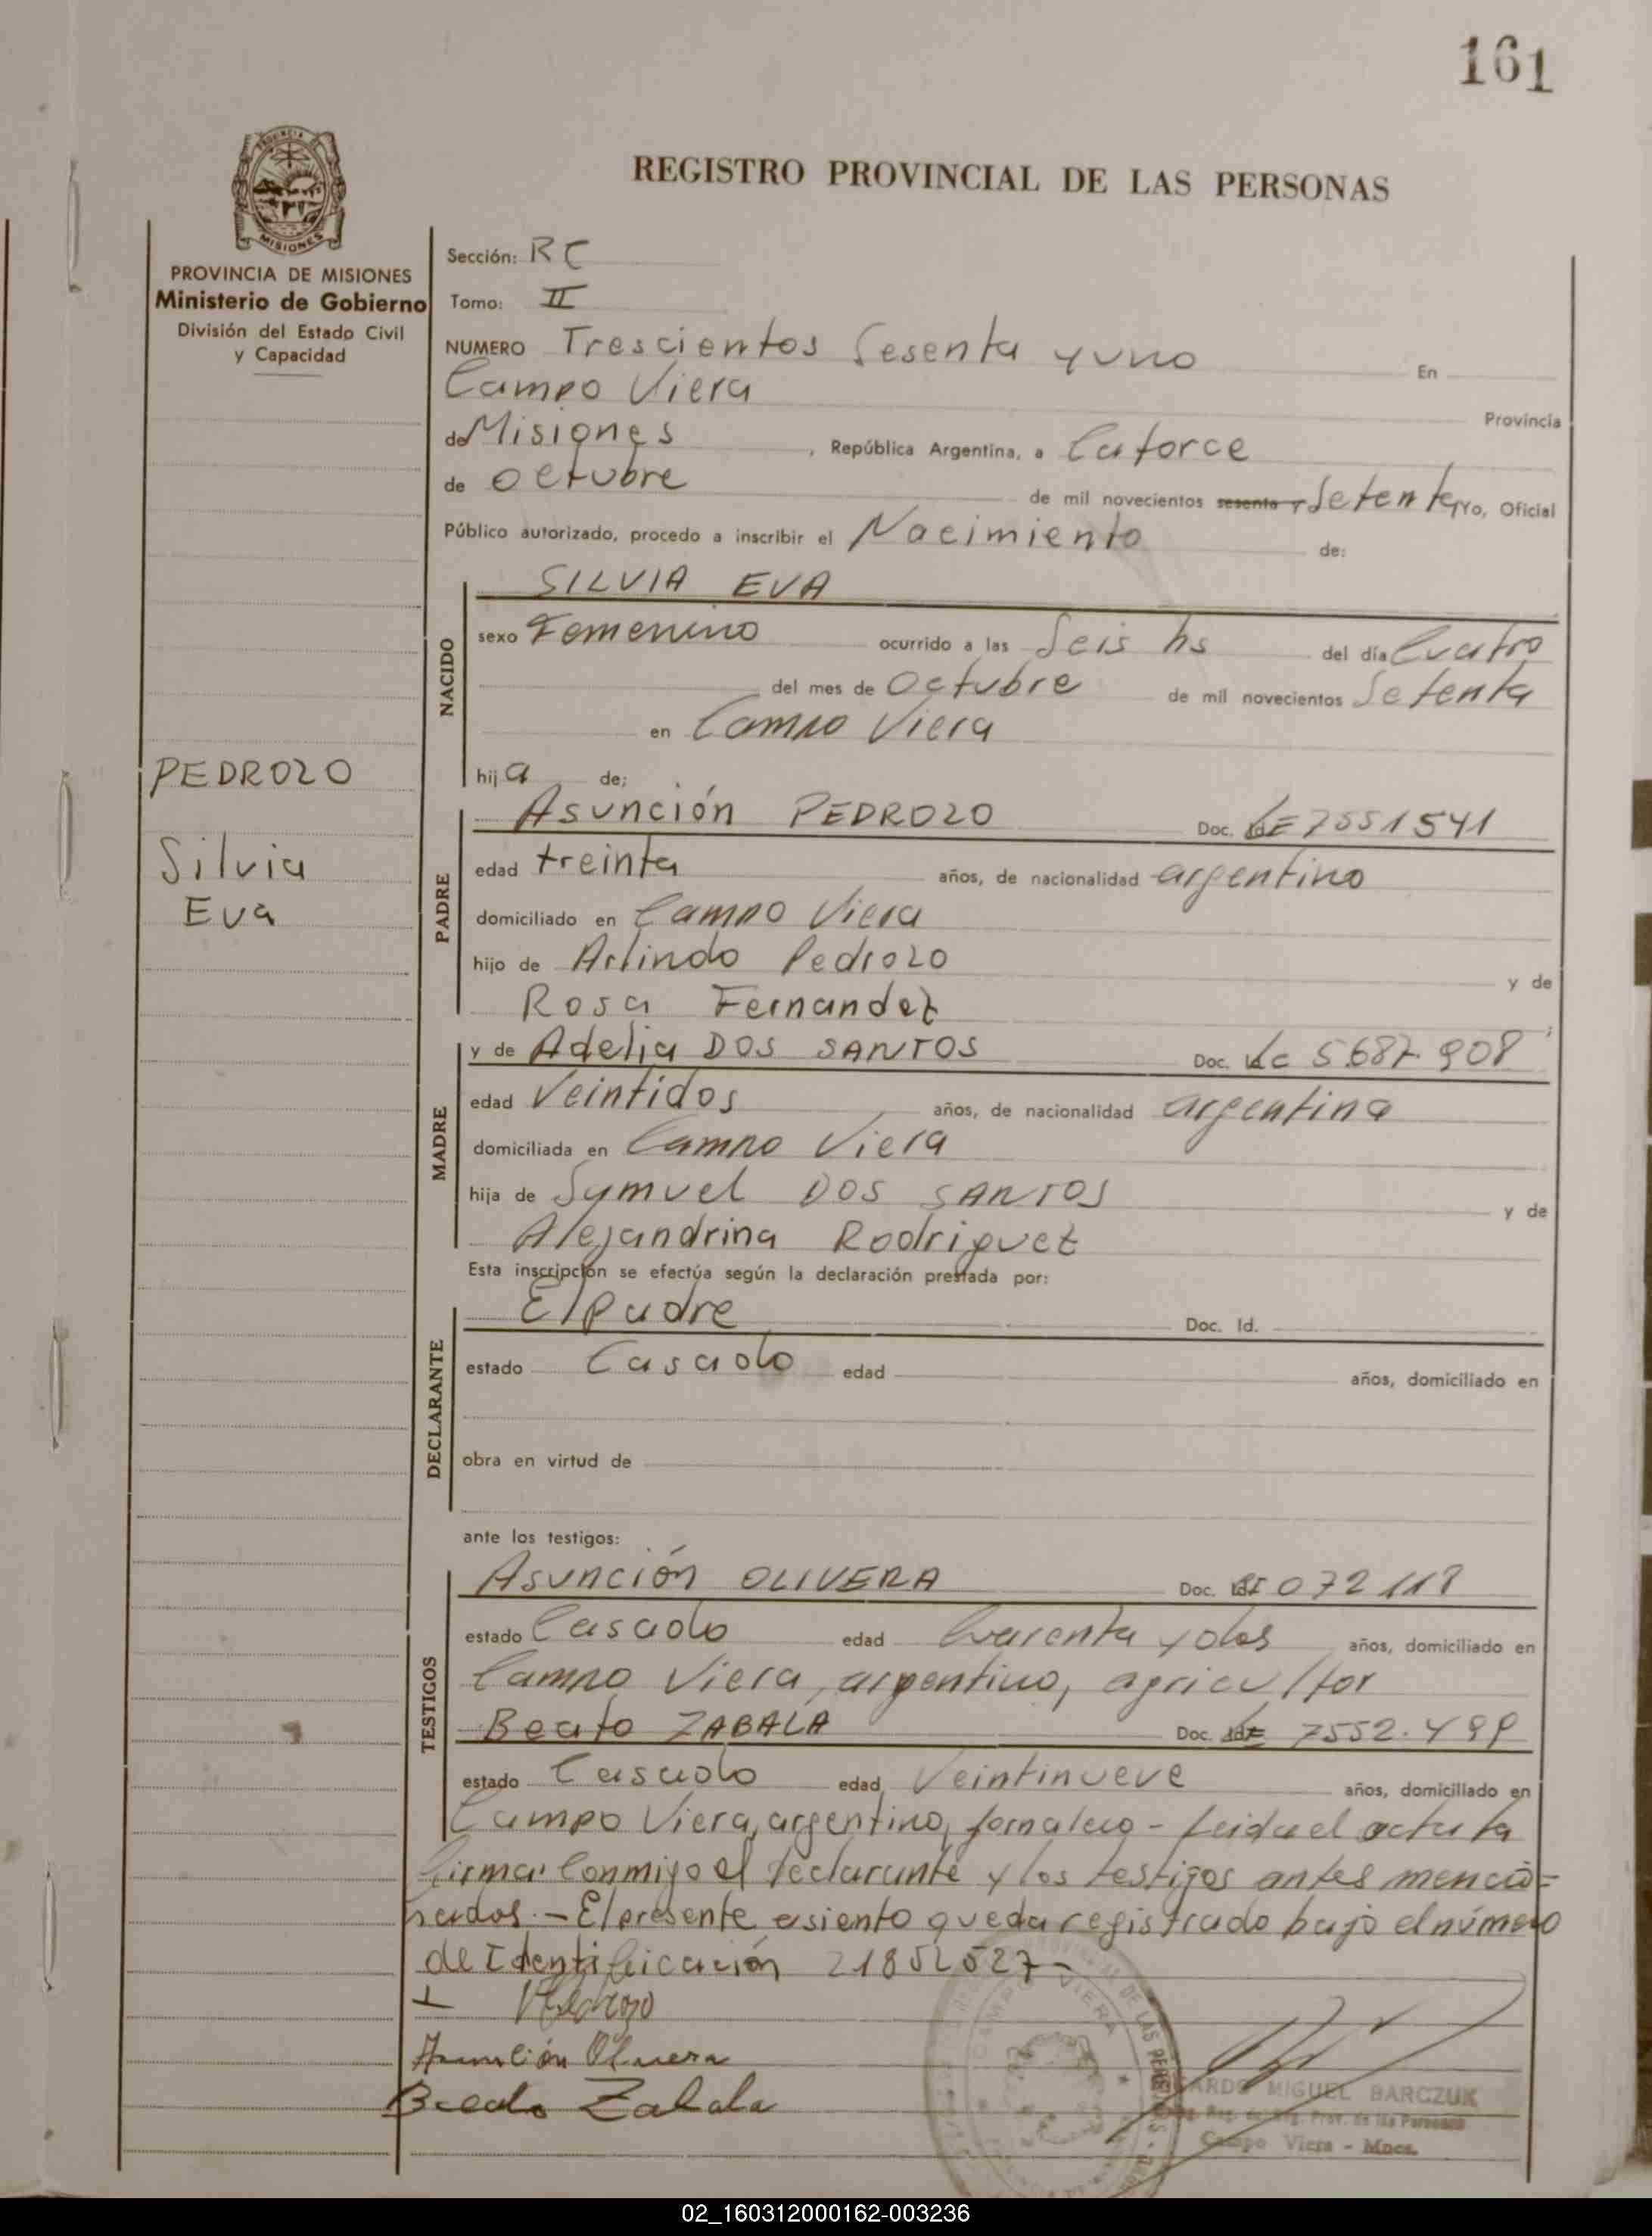 161
REGISTRO PROVINCIAL DE LAS PERSONAS
MISIONES
PROVINCIA DE MISIONES
Ministerio de Gobierno
División del Estado Civil
y Capacidad
Sección: RC
Tomo: II
NUMERO Trescientos Sesenta y uno En
Campo Viera Provincia
de Misiones, República Argentina, a Catorce
de octubre de mil novecientos sesenta y Setenta yo, Oficial
Público autorizado, procedo a inscribir el Nacimiento de:
NACIDO
SILVIA EVA
sexo Femenino ocurrido a las Seis hs del día Cuatro
del mes de Octubre de mil novecientos Setenta
en Campo Viera
hija de;
PEDROZO
Silvia
Eva
PADRE
Asunción PEDROZO Doc. LE 7551541
edad treinta años, de nacionalidad argentino
domiciliado en Campo Viera
hijo de Arlindo Pedrozo y de
Rosa Fernandez;
MADRE
y de Adelia DOS SANTOS Doc. Lc 5.687.908
edad Veintidos años, de nacionalidad argentina
domiciliada en Campo Viera
hija de Symuel DOS SANTOS y de
Alejandrina Rodriguez
Esta inscripción se efectúa según la declaración prestada por:
DECLARANTE
El padre Doc. Id.
estado Casado edad años, domiciliado en
obra en virtud de
ante los testigos:
TESTIGOS
Asunción OLIVERA Doc. 072118
estado Casado edad Cuarenta y dos años, domiciliado en
Campo Viera, argentino, agricultor
Beato ZABALA Doc. 7552.499
estado Casado edad Veintinueve años, domiciliado en
Campo Viera, argentino, jornalero - Leida el acta la
firman Conmigo el declarante y los testigos antes mencio=
nados. - El presente asiento queda registrado bajo el número
de Identificación 21852527-
Asunción Olivera
Beato Zabala
CAMPO VIERA
MIGUEL BARCZUK
Reg. Prov. de las Personas
Campo Viera - Mnes.
02_160312000162-003236